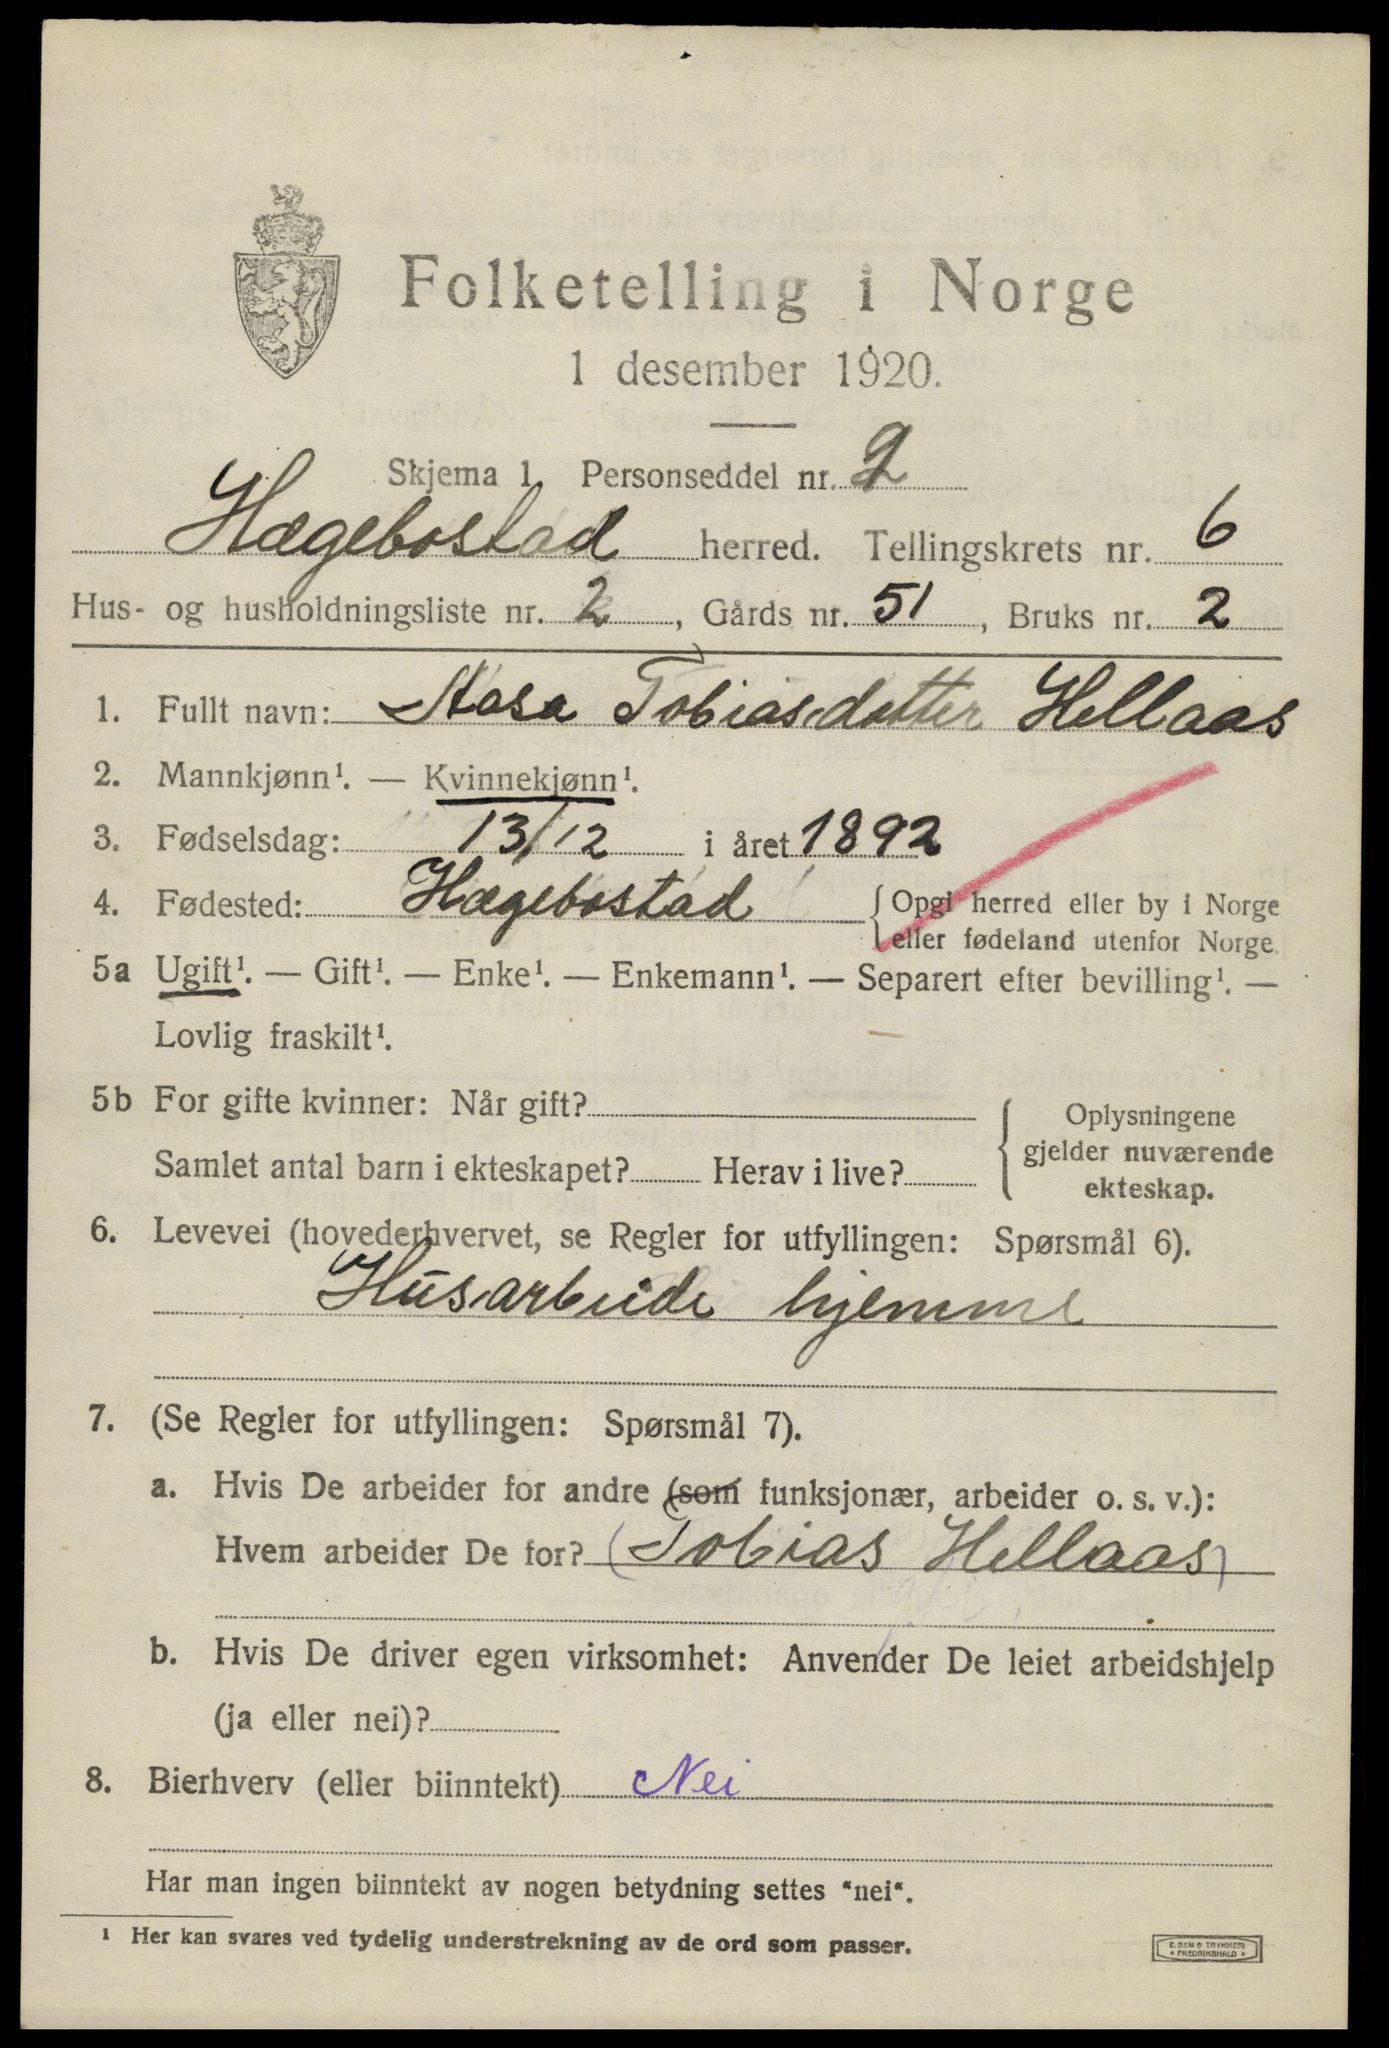 Folketelling i Norge
1 desember 1920.
Skjema 1. Personseddel nr. 2
Hægebostad herred. Tellingskrets nr. 6
Hus- og husholdningsliste nr. 2, Gårds nr. 51, Bruks nr. 2
1. Fullt navn: Aasa Tobiasdatter Hellaas
2. Mannkjønn¹. — Kvinnekjønn¹.
3. Fødselsdag: 13/12 i året 1892
4. Fødested: Hægebostad {Opgi herred eller by i Norge
eller fødeland utenfor Norge.
5a Ugift¹. — Gift¹. — Enke¹. — Enkemann¹. — Separert efter bevilling¹. —
Lovlig fraskilt¹.
5b For gifte kvinner: Når gift?
Samlet antal barn i ekteskapet? Herav i live?
Oplysningene
gjelder nuværende
ekteskap.
6. Levevei (hovederhvervet, se Regler for utfyllingen: Spørsmål 6).
Husarbeide hjemme
7. (Se Regler for utfyllingen: Spørsmål 7).
a. Hvis De arbeider for andre (som funksjonær, arbeider o. s. v.):
Hvem arbeider De for? (Tobias Hellaas)
b. Hvis De driver egen virksomhet: Anvender De leiet arbeidshjelp
(ja eller nei)?
8. Bierhverv (eller biinntekt) Nei
Har man ingen biinntekt av nogen betydning settes "nei".
¹ Her kan svares ved tydelig understrekning av de ord som passer.
E. SEM'S TRYKKERI
* FREDRIKSHALD *